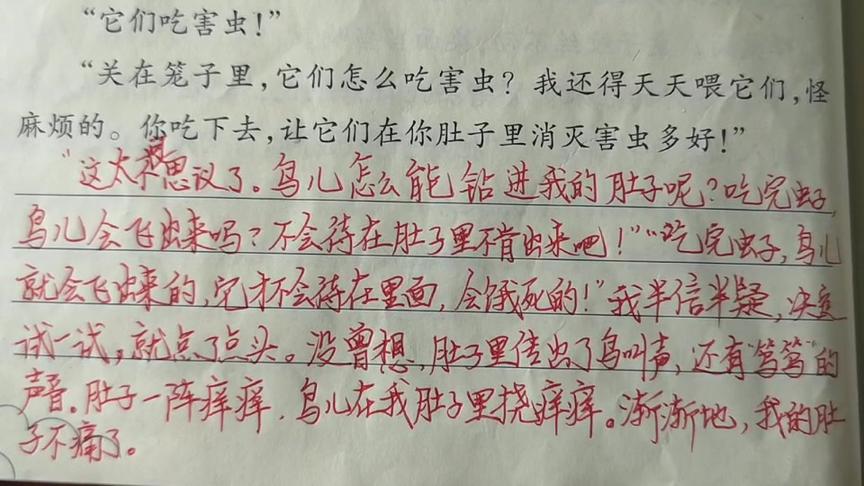 “它们吃害虫！”
“关在笼子里，它们怎么吃害虫？我还得天天喂它们，怪
麻烦的。你吃下去，让它们在你肚子里消灭害虫多好！”
“这太不思议了。鸟儿怎么能钻进我的肚子呢？吃完虫子，
鸟儿会飞出来吗？不会待在肚子里不肯出来吧！”“吃完虫子，鸟儿
就会飞出来的，它才不会待在里面，会饿死的！”我半信半疑，决定
试一试，就点了点头。没曾想，肚子里传出了鸟叫声，还有“笃笃”的
声音。肚子一阵痒痒，鸟儿在我肚子里挠痒痒。渐渐地，我的肚
子不痛了。